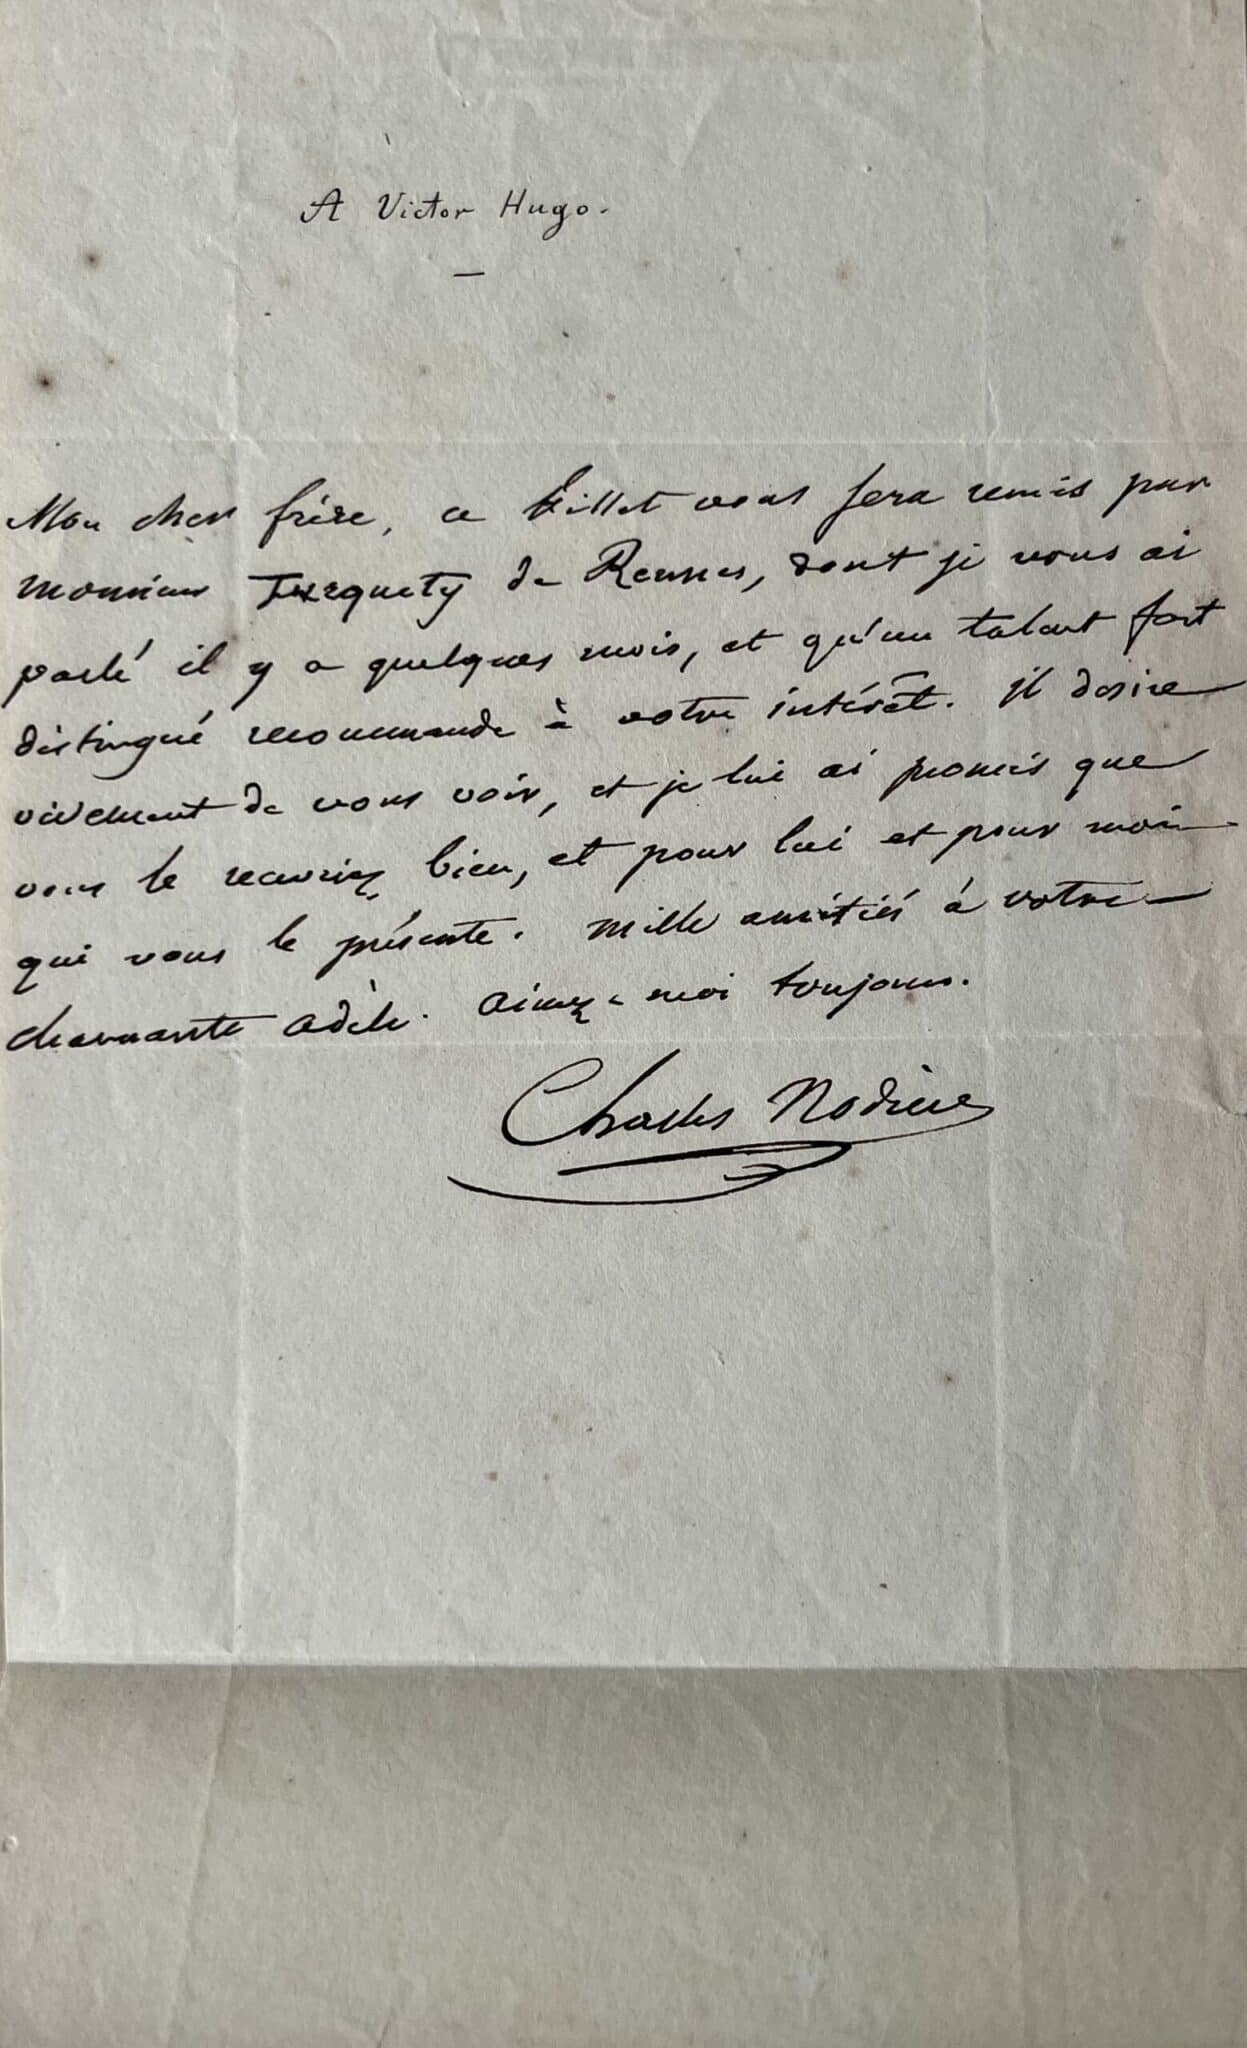 A Victor Hugo.
—
Mon cher frère, ce billet vous sera remis par
monsieur Turquety de Rennes, dont je vous ai
parlé il y a quelques mois, et qu'un talent fort
distingué recommande à votre intérêt. Il desire
vivement de vous voir, et je lui ai promis que
vous le recevriez bien, et pour lui et pour moi
qui vous le présente. Mille amitiés à votre
charmante Adèle. Aimez-moi toujours.
Charles Nodier